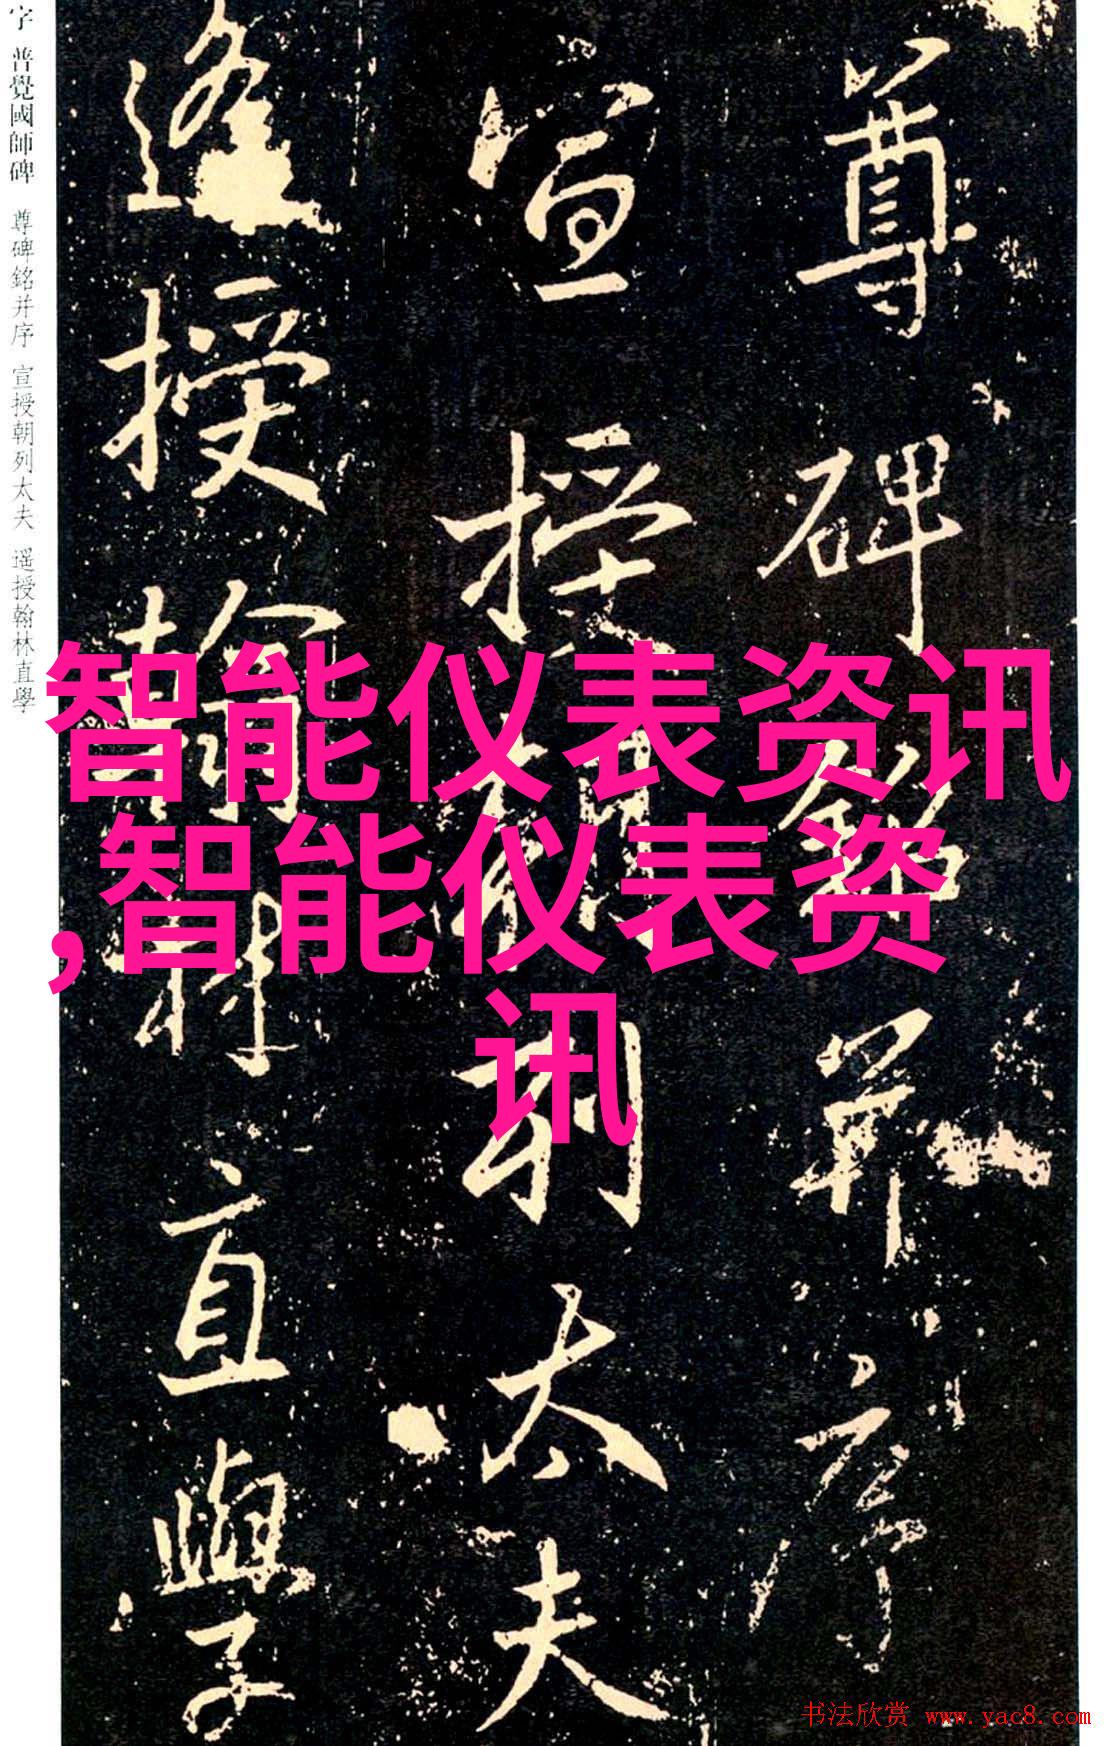 尊碑銘并序
宣授朝列太夫
遥授翰林直學
字 普覺國師碑 尊碑銘并序 宣授朝列太夫 遥授翰林直學
智能仪表资讯
,智能仪表资
讯
书法欣赏 www.yac8.com